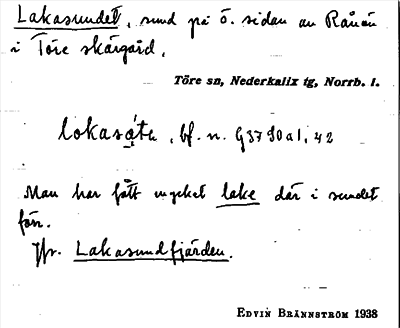 Lakasundet, sund på ö. sidan av Rånön
i Töre skärgård.
Töre sn, Nederkalix tg, Norrb. l.
bf. n. G3790a1, 42
Man har fått mycket lake där i sundet
förr.
Jfr. Lakasundfjärden.
EDVIN BRÄNNSTRÖM 1938